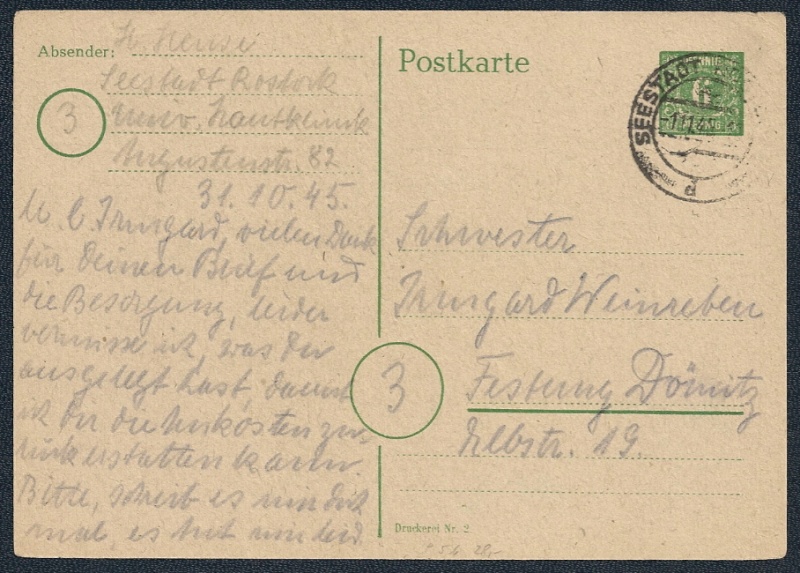 Absender:
H. Heuse
Seestadt Rostock
3
Univ. Hautklinik
Augustenstr. 82
31.10.45.
M. l. Irmgard, vielen Dank
für Deinen Brief und
die Besorgung, leider
vermisse ich, was Du
ausgelegt hast, damit
ich Dir die Unkosten zu-
rückerstatten kann.
Bitte, schreib es mir doch
mal, es tut mir leid
Postkarte
SEESTADT
d
Schwester
Irmgard Weinreben
3
Festung Dömitz
Elbstr. 19.
Druckerei Nr. 2